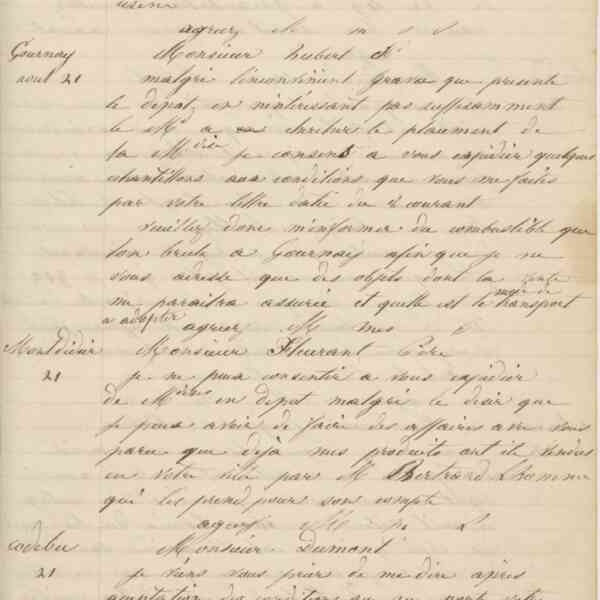 agréez M m s
Gournay Monsieur hubert fs
aout 21 malgré l'inconvénient grave que présente
le dépot, en n'intéressant pas suffisamment
le Md a chercher le placement de
la Mdise je consens a vous expédier quelques
echantillons aux conditions que vous me faites
par votre lettre datée du 2 courant
veuillez donc m'informer du combustible que
lon brule a Gournay afin que je ne
vous adresse que des objets dont la vente
me paraitra assurée et quelle est le mode de transport
a adopter
agréez M mes s
Montdidier Monsieur Fleurant Père
21 je ne puis consentir a vous expédier
de Mdises en depot malgré le desir que
je puis avoir de faire des affaires avec vous
parce que déjà mes produits ont été vendus
en votre ville par M Bertrand Lhomme
qui les prend pour son compte
agréez M
codebec Monsieur Dumont
21 je viens vous prier de me dire après
acceptation des conditions